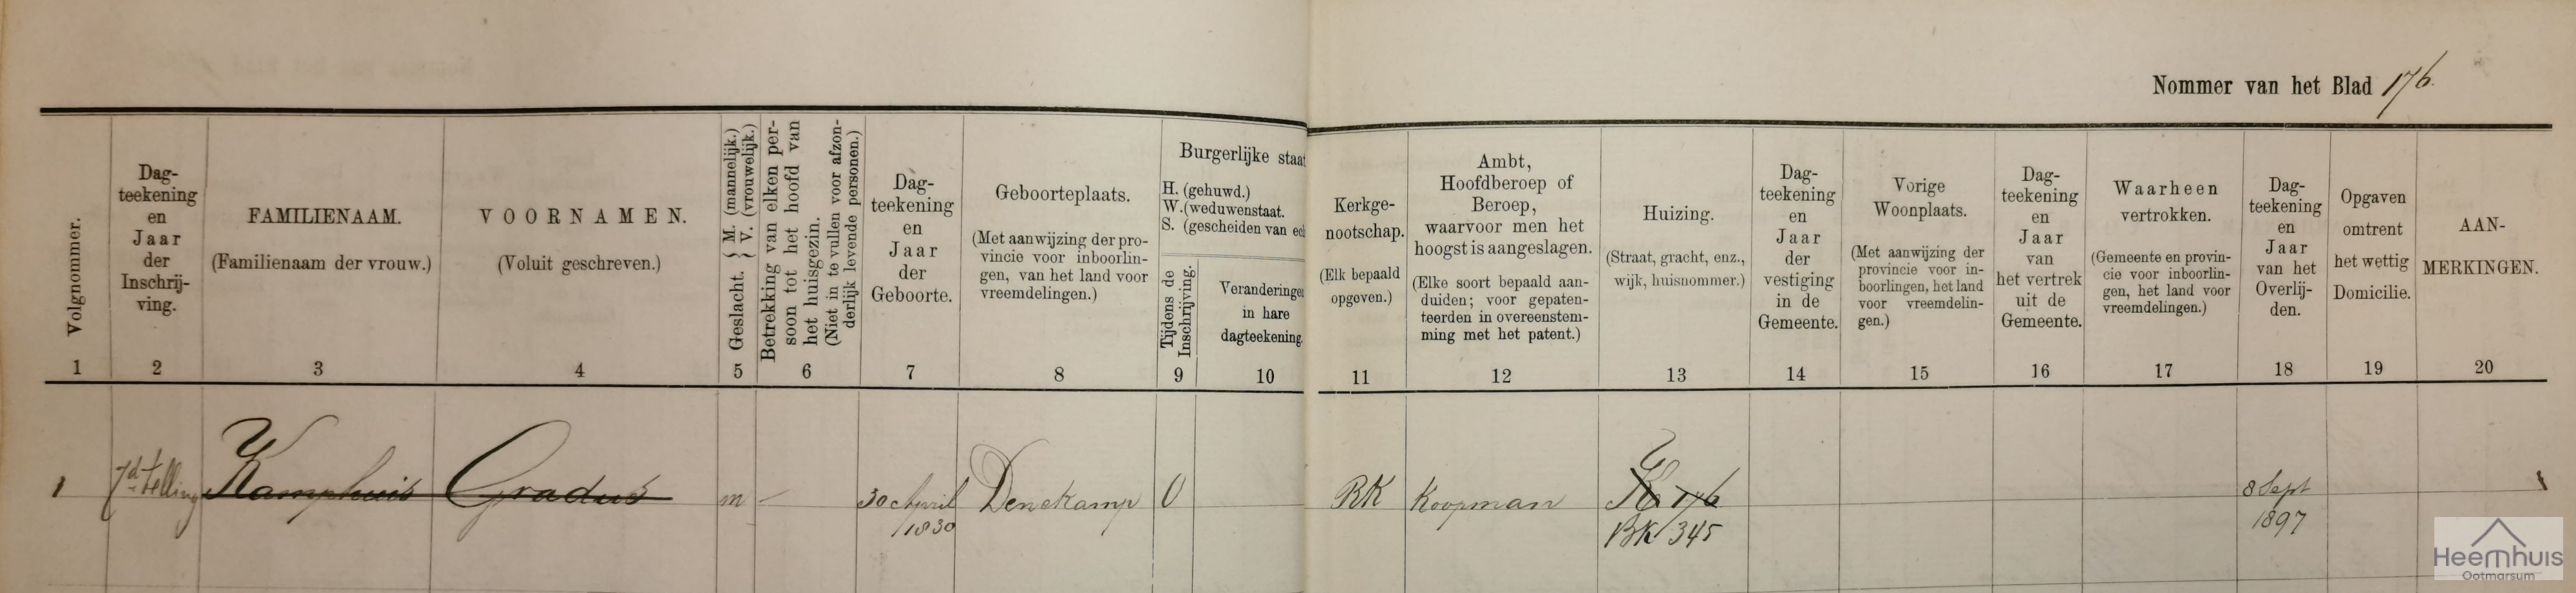 Nommer van het Blad 176.
Volgnommer.
Dag-
teekening
en
Jaar
der
Inschrij-
ving.
FAMILIENAAM.
(Familienaam der vrouw.)
VOORNAMEN.
(Voluit geschreven.)
Geslacht. { M. (mannelijk.)
V. (vrouwelijk.)
Betrekking van elken per-
soon tot het hoofd van
het huisgezin.
(Niet in te vullen voor afzon-
derlijk levende personen.)
Dag-
teekening
en
Jaar
der
Geboorte.
Geboorteplaats.
(Met aanwijzing der pro-
vincie voor inboorlin-
gen, van het land voor
vreemdelingen.)
Burgerlijke staat
H. (gehuwd.)
W. (weduwenstaat.
S. (gescheiden van ec
Tijdens de
Inschrijving.
Veranderingen
in hare
dagteekening.
Kerkge-
nootschap.
(Elk bepaald
opgeven.)
Ambt,
Hoofdberoep of
Beroep,
waarvoor men het
hoogst is aangeslagen.
(Elke soort bepaald aan-
duiden; voor gepaten-
teerden in overeenstem-
ming met het patent.)
Huizing.
(Straat, gracht, enz.,
wijk, huisnommer.)
Dag-
teekening
en
Jaar
der
vestiging
in de
Gemeente.
Vorige
Woonplaats.
(Met aanwijzing der
provincie voor in-
boorlingen, het land
voor vreemdelin-
gen.)
Dag-
teekening
en
Jaar
van
het vertrek
uit de
Gemeente.
Waarheen
vertrokken.
(Gemeente en provin-
cie voor inboorlin-
gen, het land voor
vreemdelingen.)
Dag-
teekening
en
Jaar
van het
Overlij-
den.
Opgaven
omtrent
het wettig
Domicilie.
AAN-
MERKINGEN.
1 2 3 4 5 6 7 8 9 10 11 12 13 14 15 16 17 18 19 20
1 7d telling Kamphuis Gradus m — 30 April Denekamp O RK Koopman 176 8 Sept 1
1830 BK 345 1897
Heemhuis
Ootmarsum